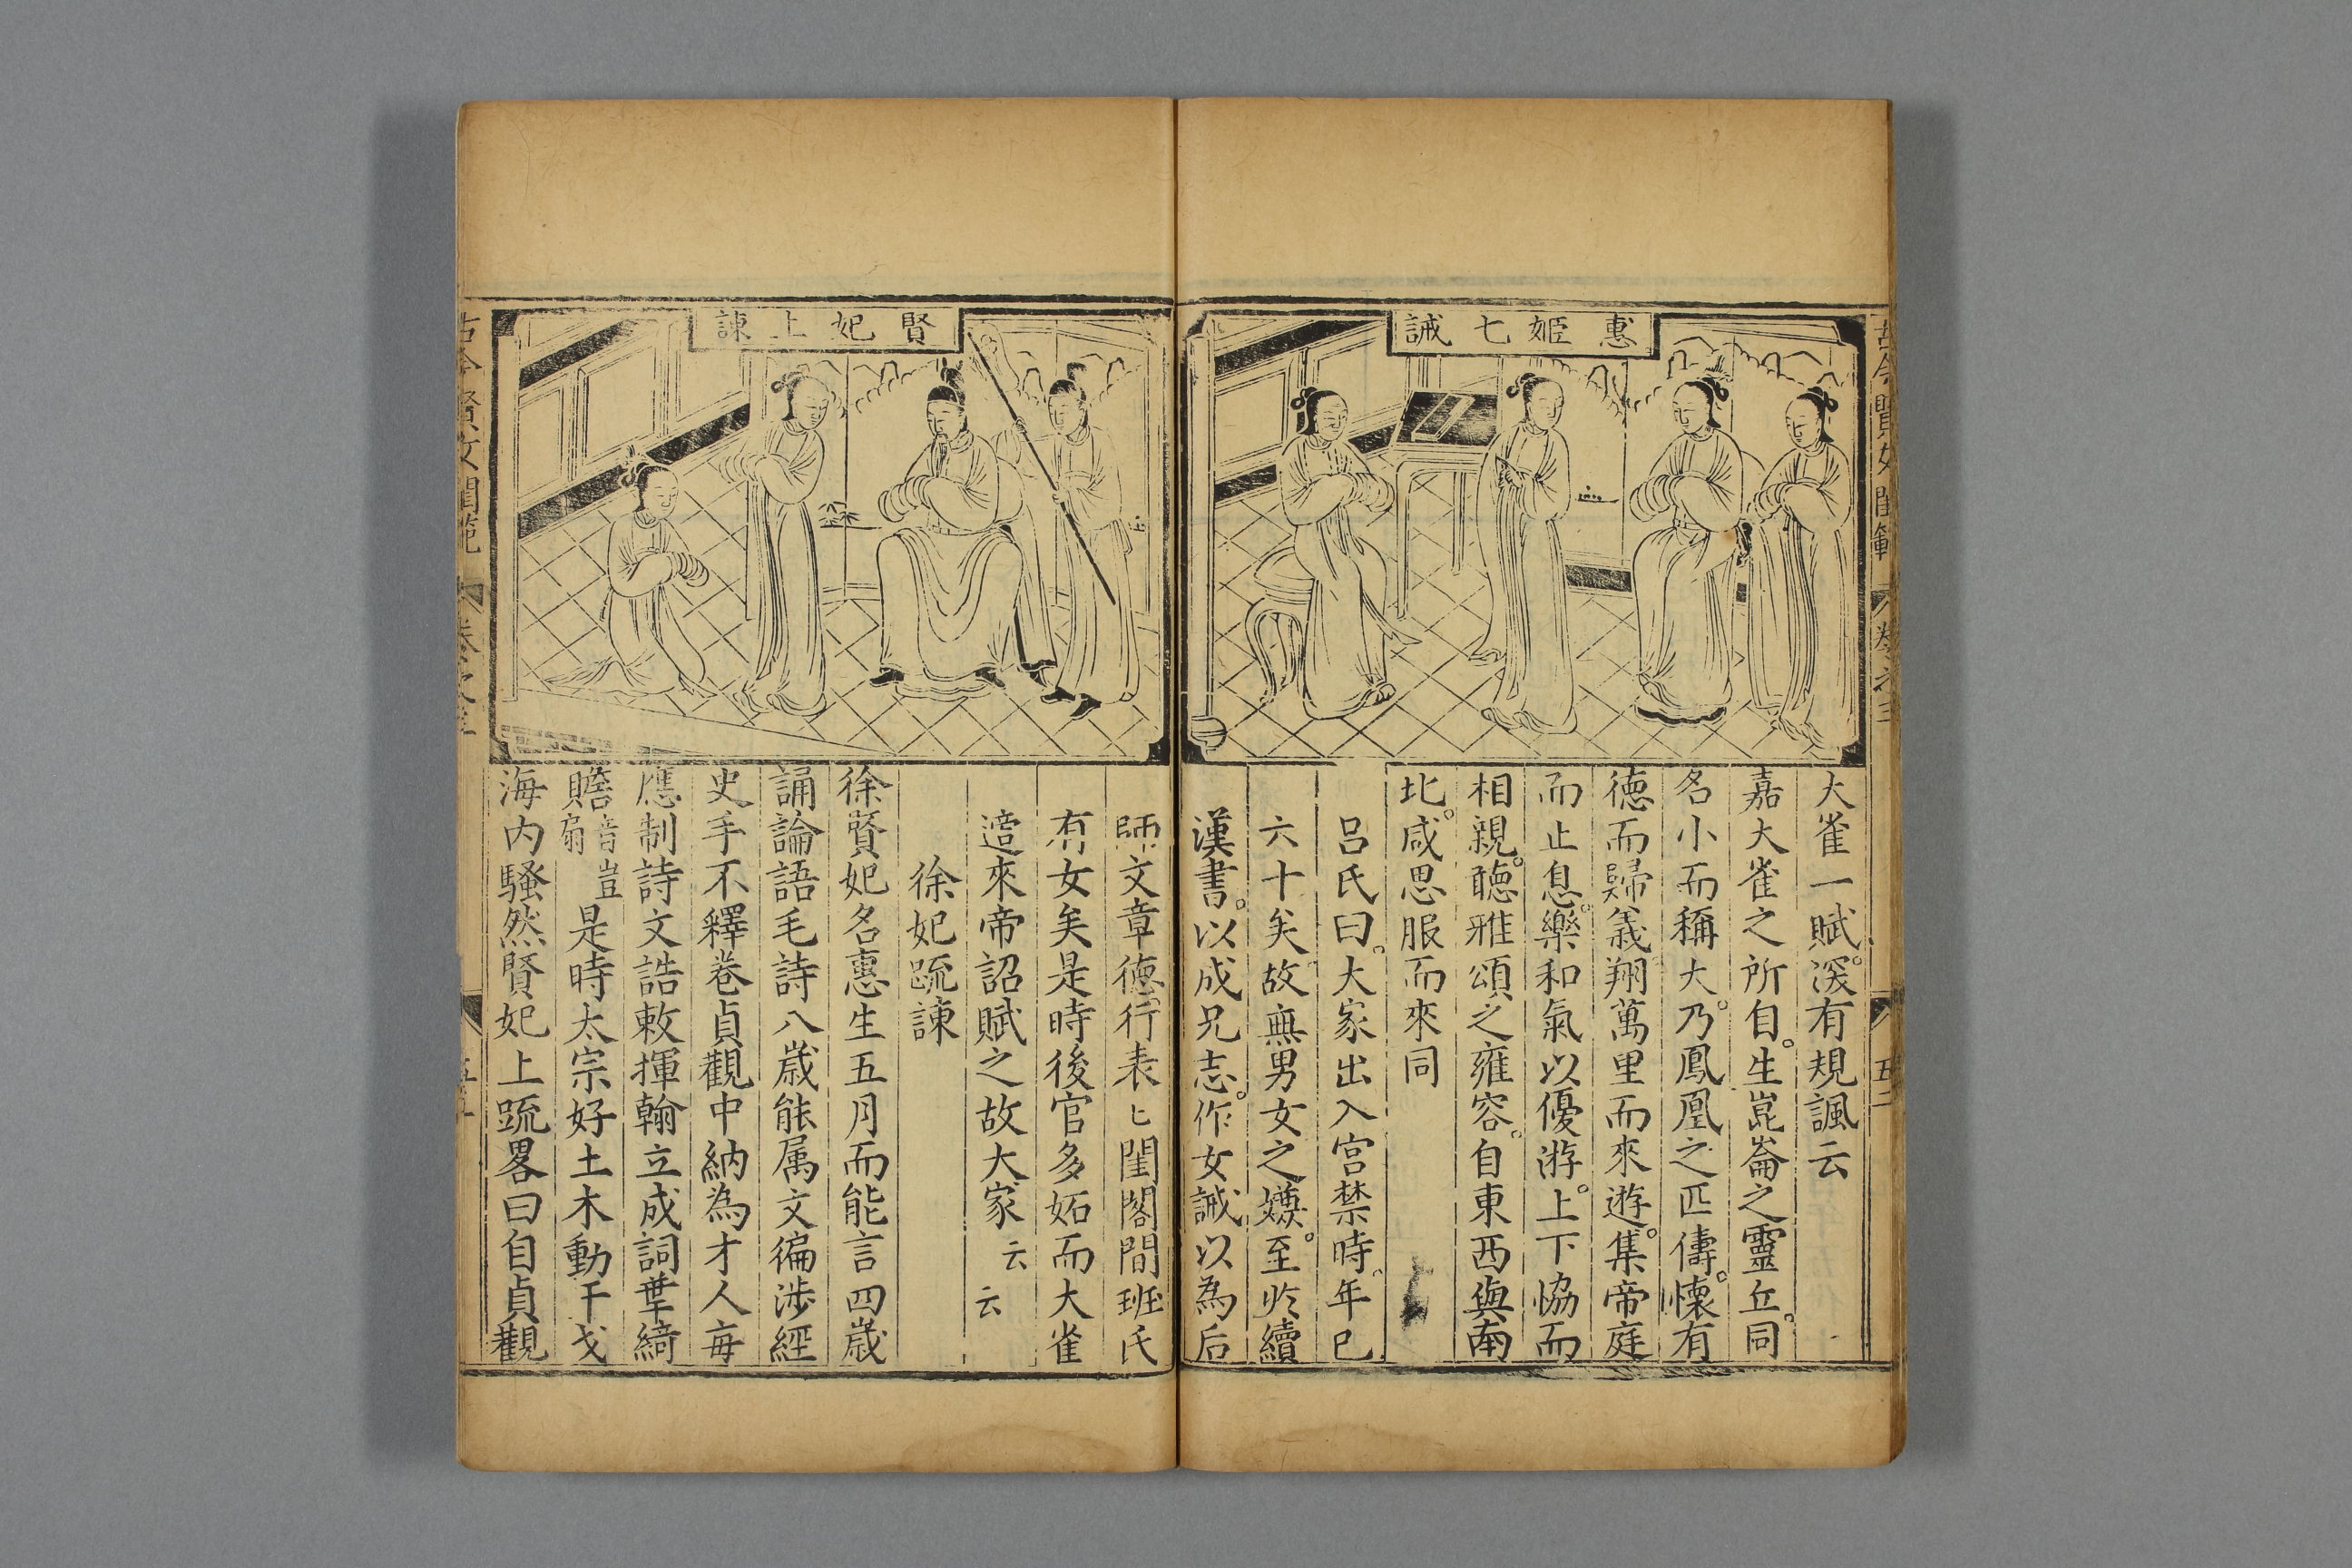 古今賢女閨範
卷之三
五二
惠姬七誡
大雀一賦。深有規諷云
嘉大雀之所自。生崑崙之靈丘。同
名小而稱大。乃鳳凰之匹儔。懷有
德而歸義。翔萬里而來遊。集帝庭
而止息。樂和氣以優游。上下協而
相親。聽雅頌之雍容。自東西與南
北。咸思服而來同
呂氏曰。大家出入宮禁時。年巳
六十矣。故無男女之嫌。至於續
漢書。以成兄志。作女誡以為后
賢妃上諫
師文章德行表〻閨閣間班氏
有女矣是時後宮多妬而大雀
適來帝詔賦之故大家云云
徐妃䟽諫
徐賢妃名惠生五月而能言四歲
誦論語毛詩八歲能属文徧涉經
史手不釋卷貞觀中納為才人每
應制詩文誥敕揮翰立成詞華綺
贍音扇豈是時太宗好土木動干戈
海内騷然賢妃上䟽畧曰自貞觀
古今賢女閨範
卷之三